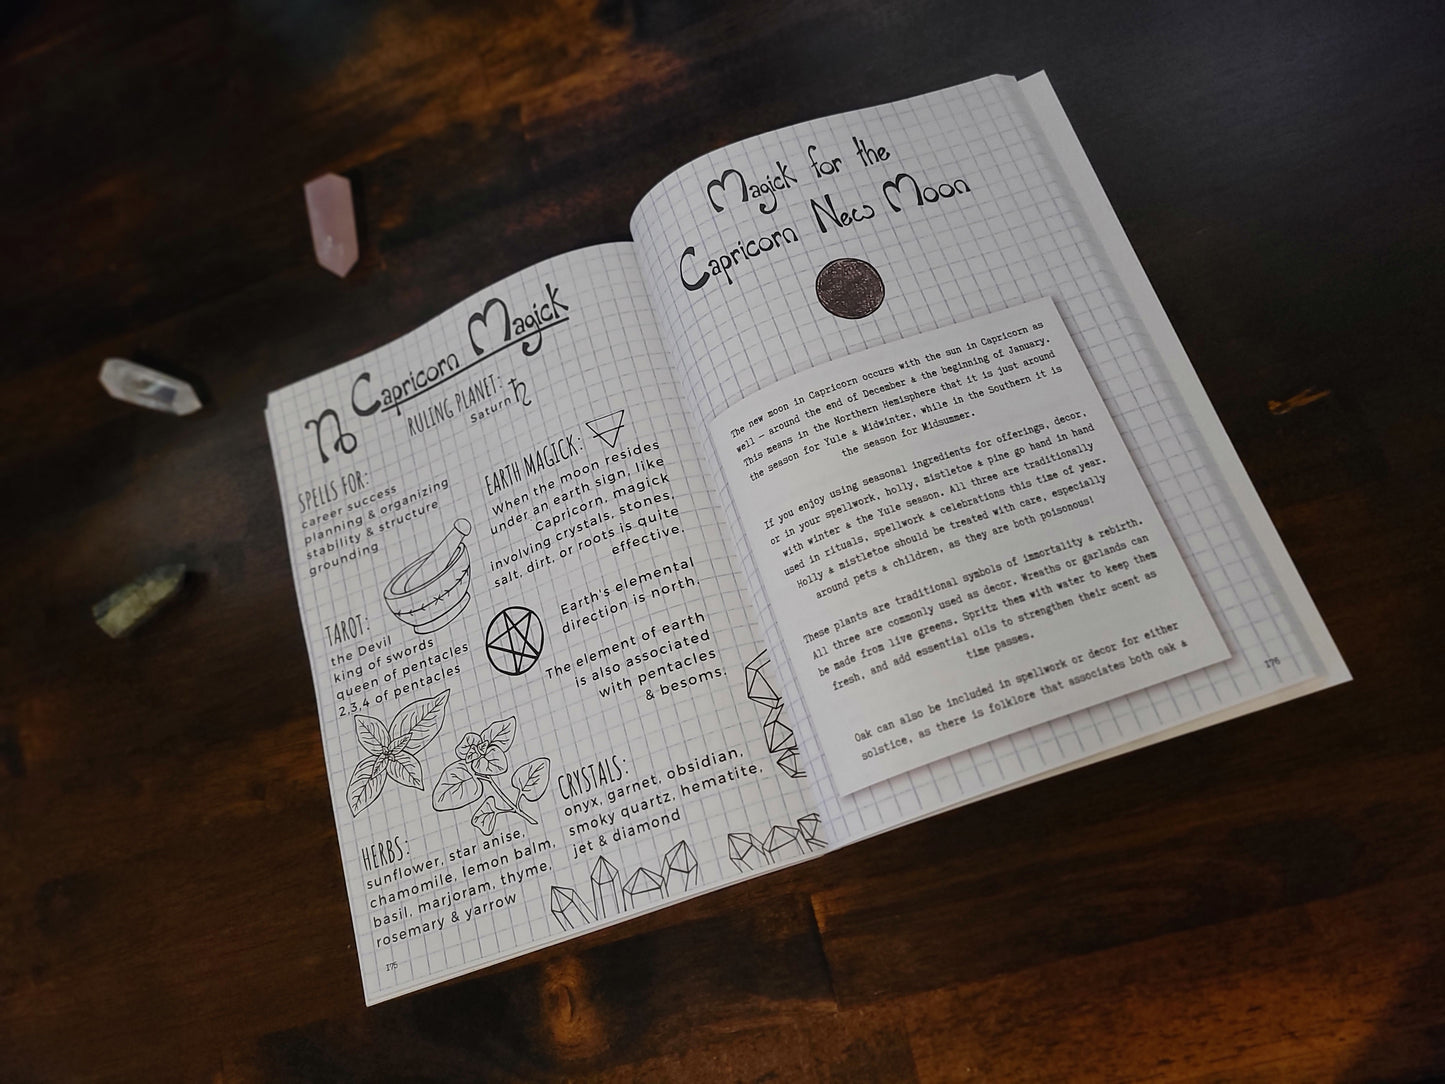 Capricorn Magick
RULING PLANET:
Saturn ♄
SPELLS FOR:
career success
planning & organizing
stability & structure
grounding
EARTH MAGICK:
When the moon resides
under an earth sign, like
Capricorn, magick
involving crystals, stones,
salt, dirt, or roots is quite
effective.
Earth's elemental
direction is north.
The element of earth
is also associated
with pentacles
& besoms.
TAROT:
the Devil
king of swords
queen of pentacles
2,3,4 of pentacles
HERBS:
sunflower, star anise,
chamomile, lemon balm,
basil, marjoram, thyme,
rosemary & yarrow
CRYSTALS:
onyx, garnet, obsidian,
smoky quartz, hematite,
jet & diamond
175
Magick for the
Capricorn New Moon
The new moon in Capricorn occurs with the sun in Capricorn as
well — around the end of December & the beginning of January.
This means in the Northern Hemisphere that it is just around
the season for Yule & Midwinter, while in the Southern it is
the season for Midsummer.
If you enjoy using seasonal ingredients for offerings, decor,
or in your spellwork, holly, mistletoe & pine go hand in hand
with winter & the Yule season. All three are traditionally
used in rituals, spellwork & celebrations this time of year.
Holly & mistletoe should be treated with care, especially
around pets & children, as they are both poisonous!
These plants are traditional symbols of immortality & rebirth.
All three are commonly used as decor. Wreaths or garlands can
be made from live greens. Spritz them with water to keep them
fresh, and add essential oils to strengthen their scent as
time passes.
Oak can also be included in spellwork or decor for either
solstice, as there is folklore that associates both oak &
176